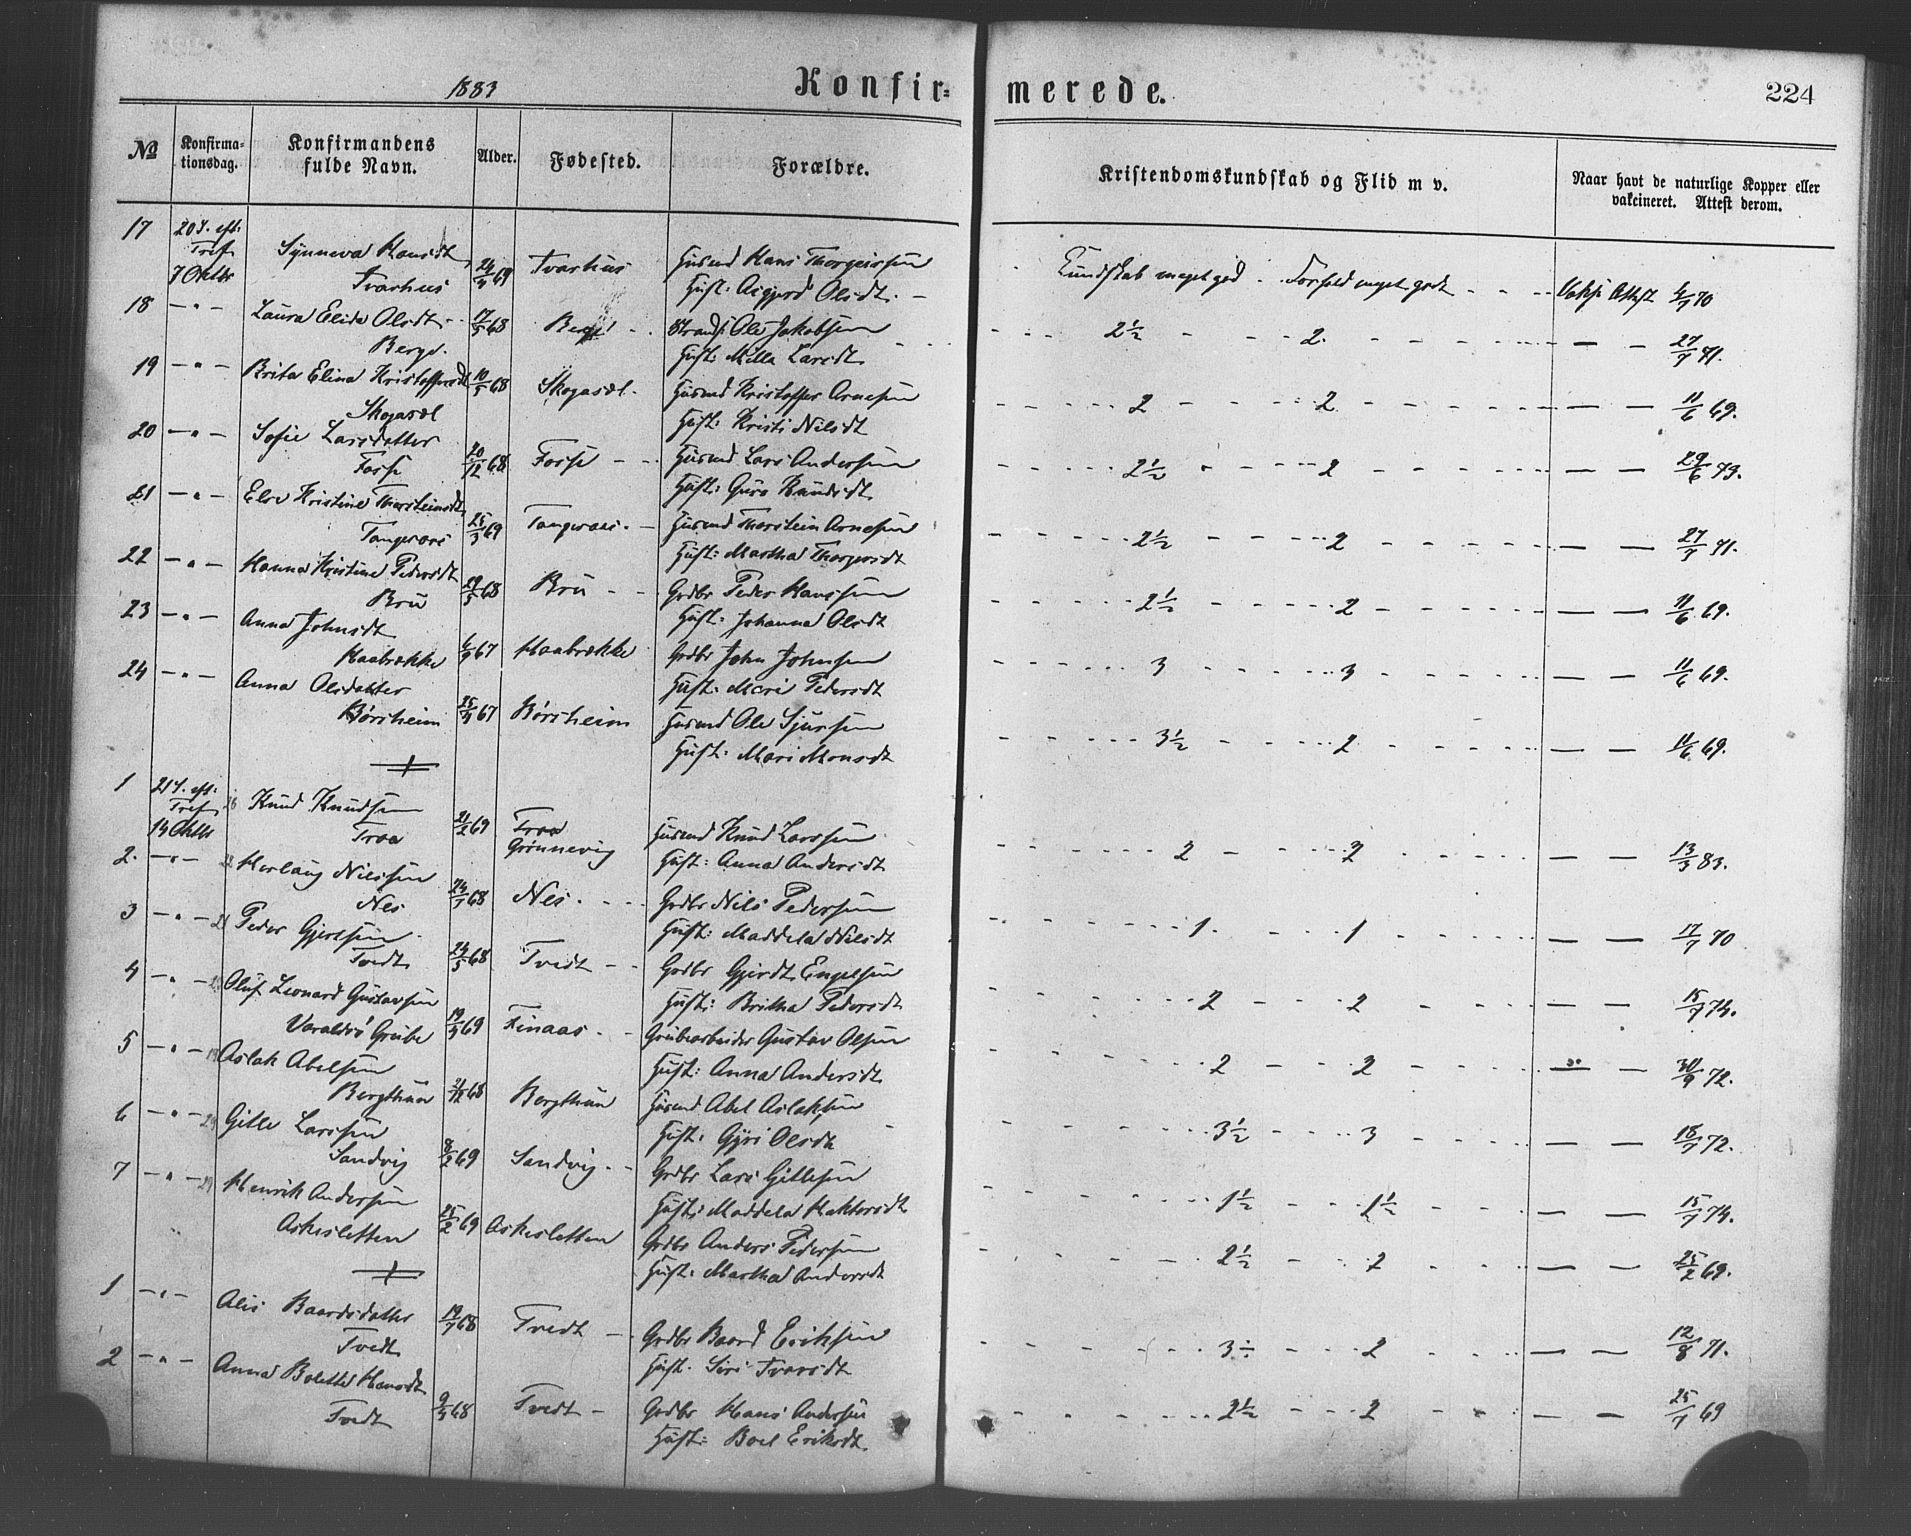 1883
Konfir=
merede.
224
No
Konfirma-
tionsdag.
Konfirmandens
fulde Navn.
Alder.
Fødested.
Forældre.
Kristendomskundskab og Flid m v.
Naar havt de naturlige Kopper eller
vakcineret. Attest derom.
17 20 S. eft: Tref. 7 Oktbr Synneva Hansdt Tvarhus 69 Tvarhus Husmd Hans Thorgeirsen
Hust: Olsdt. Kundskab meget god Forhold meget godt Vaks: Attest 70
18 — " — Laura Elida Olsdt. Berge. 17/5 68 Berge Strands: Ole Jakobsen
Hust: Milla Larsdt. 2½ 2. 27/7 71.
19 — " — Brita Elina Kristoffersdt Skogasæl 10/5 68 Skogasæl. Husmd Kristoffer Arnesen
Hust: Kristi Nilsdt 2 2 11/6 69.
20 — " — Sofie Larsdatter Fosse 20/12 68 Fosse Husmd Lars Andersen
Hust: Guro Knudsdt 2½ 2 29/6 73.
21 — " — Else Kristine Thorsteinsdt Tangeraas 25/3 69 Tangeraas. Husmd Thorstein Arnesen
Hust: Martha Thorgersdt 2½ 2 27/7 71.
22 — " — Hanna Kristine Pedersdt Bru 29/5 68 Bru Grdbr Peder Hansen
Hust: Johanna Olsdt 2½ 2 11/6 69.
23 — " — Anna Johnsdt Haabrække 6/9 67 Haabrække Grdbr John Johnsen
Hust: Mari Pedersdt 3 3 11/6 69.
24 — " — Anna Olsdatter Børsheim 67 Børsheim Husmd Ole Sjursen
Hust: Mari Monsdt 3½ 2 11/6 69.
1 21 S. eft: Tref. 14 Oktbr Knud Knudsen Traa 21/2 69 Traa Grønnevig Husmd Knud Larssen
Hust: Anna Andersdt 2 2 13/3 83.
2. — " — Herlaug Nilssen Nes 68 Nes. Grdbr Nils Pedersen
Hust: Maddela Nilsdt 1. 1 17/7 70
3 — " — Peder Gjertsen Tvedt 24/5 68 Tvedt Grdbr Gjerdt Engelsen
Hust: Britha Pedersdt 2 2 15/7 74.
4 — " — Oluf Leonard Gustavsen Varaldsø Grube 69 Finaas. Grubearbeider Gustav Olsen
Hust: Anna Andersdt. 2 2 30/9 72.
5 — " — Aslak Abelsen Bergthun 68 Bergthun Husmd Abel Aslaksen
Hust: Gjøri Olsdt 3½ 3 18/7 72.
6 — " — Gitle Larssen Sandvig 8/2 69 Sandvig. Grdbr Lars Gitlesen
Hust: Maddela Haktorsdt 1½ 1½ 15/7 74.
7 — " — Henrik Andersen Askesletten 25/2 69 Askesletten Grdbr Anders Pedersen
Hust: Martha Andersdt 2½ 2 25/2 69.
1 — " — Alis Baardsdatter Tvedt 19/7 68 Tvedt Grdbr Baard Eriksen
Hust. Siri Ivarsdt 3 2 12/8 71.
2 — " — Anna Bolette Hansdt Tvedt 68 Tvedt Grdbr Hans Andersen
Hust: Boel Eriksdt. 2½ 2 25/7 69